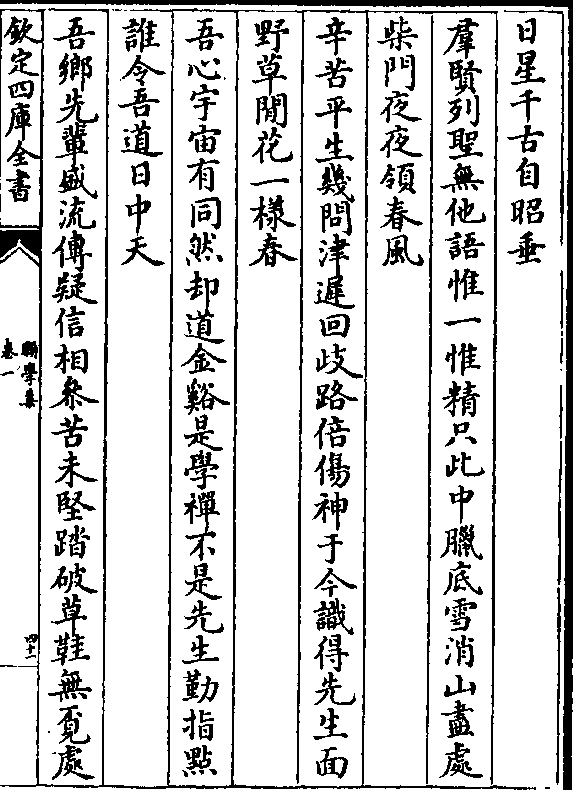 日星千古自昭垂
羣賢列聖無他語惟一惟精只此中臘底雪消山盡處
柴門夜夜領春風
辛苦平生幾問津遲回歧路倍傷神于今識得先生面
野草閒花一樣春
吾心宇宙有同然却道金谿是學禪不是先生勤指點
誰令吾道日中天
吾鄉先輩盛流傳疑信相叅苦未堅踏破草鞋無覔處
欽定四庫全書
卷一
四十二